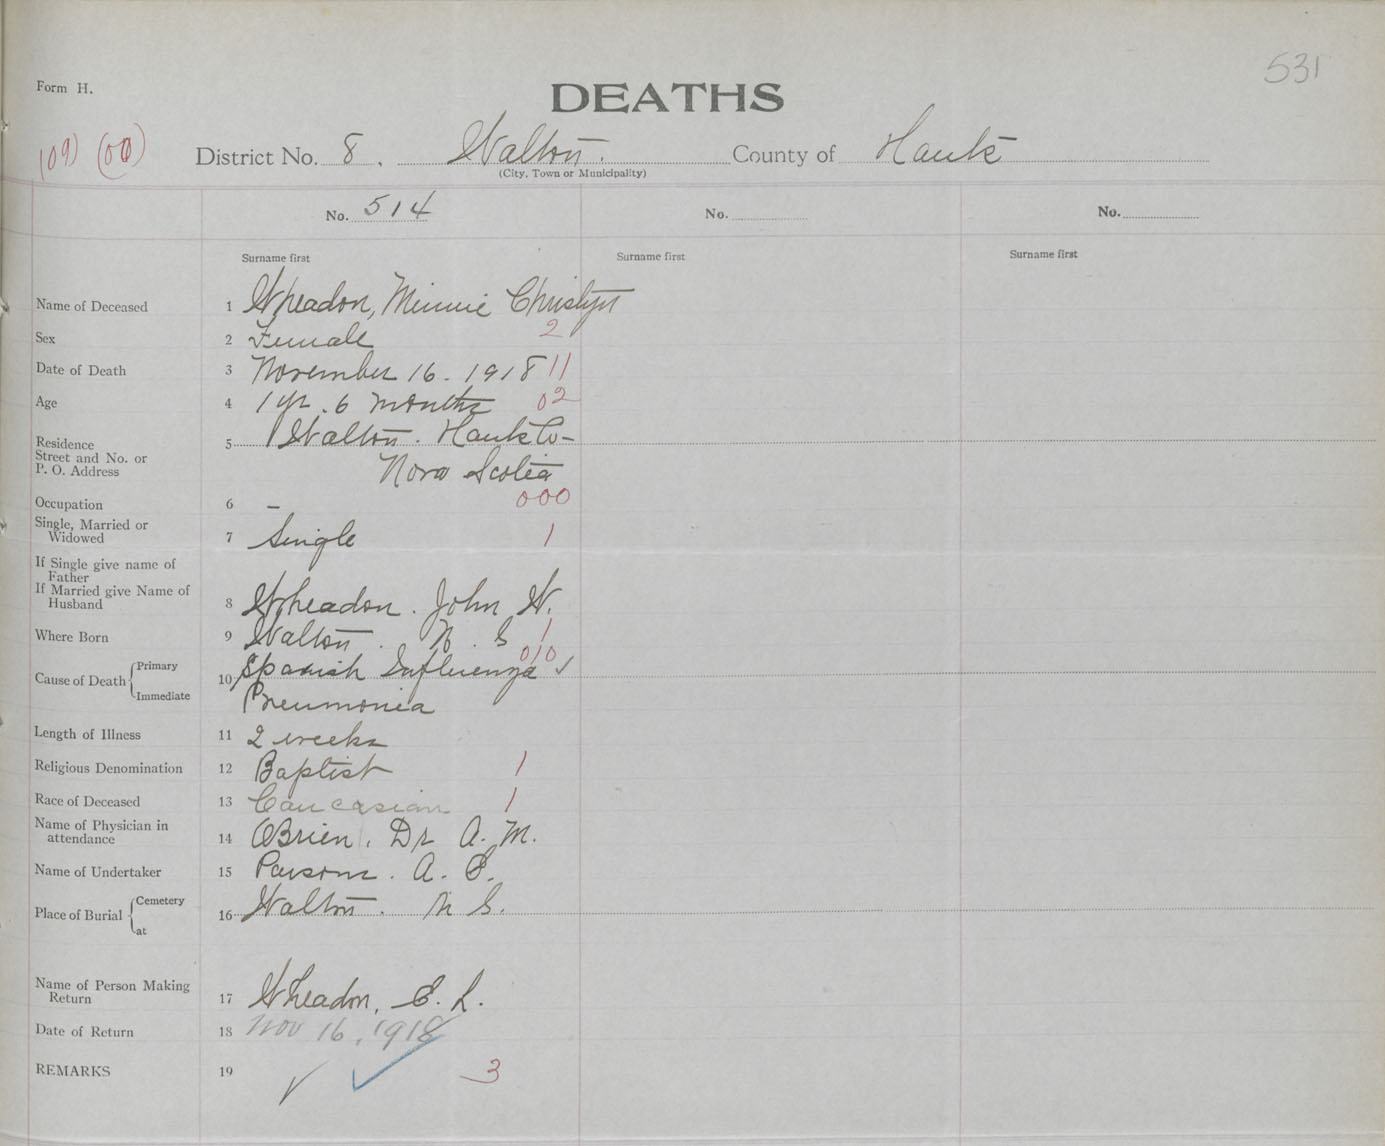 531
Form H.
DEATHS
(09) (00)
District No. 8. Walton. County of Hants
(City, Town or Municipality)
No. 514 No. No.
Surname first Surname first Surname first
Name of Deceased 1 Wheadon, Minnie Christyn
Sex 2 Female 2
Date of Death 3 November 16. 1918 11
Age 4 1 yr. 6 months 02
Residence 5 Walton. Hants Co-
Street and No. or
P. O. Address Nova Scotia
Occupation 6 - 000
Single, Married or
Widowed 7 Single 1
If Single give name of
Father
If Married give Name of
Husband 8 Wheadon. John W.
Where Born 9 Walton. N. S 1
010
Cause of Death Primary 10 Spanish Influenza ✓
Immediate Pneumonia
Length of Illness 11 2 weeks
Religious Denomination 12 Baptist 1
Race of Deceased 13 Caucasian 1
Name of Physician in
attendance 14 OBrien. Dr A. M.
Name of Undertaker 15 Parsons. A. E.
Place of Burial Cemetery 16 Walton. N S.
at
Name of Person Making
Return 17 Wheadon, E. L.
Date of Return 18 Nov 16, 1918
REMARKS 19 ✓ ✓ 3